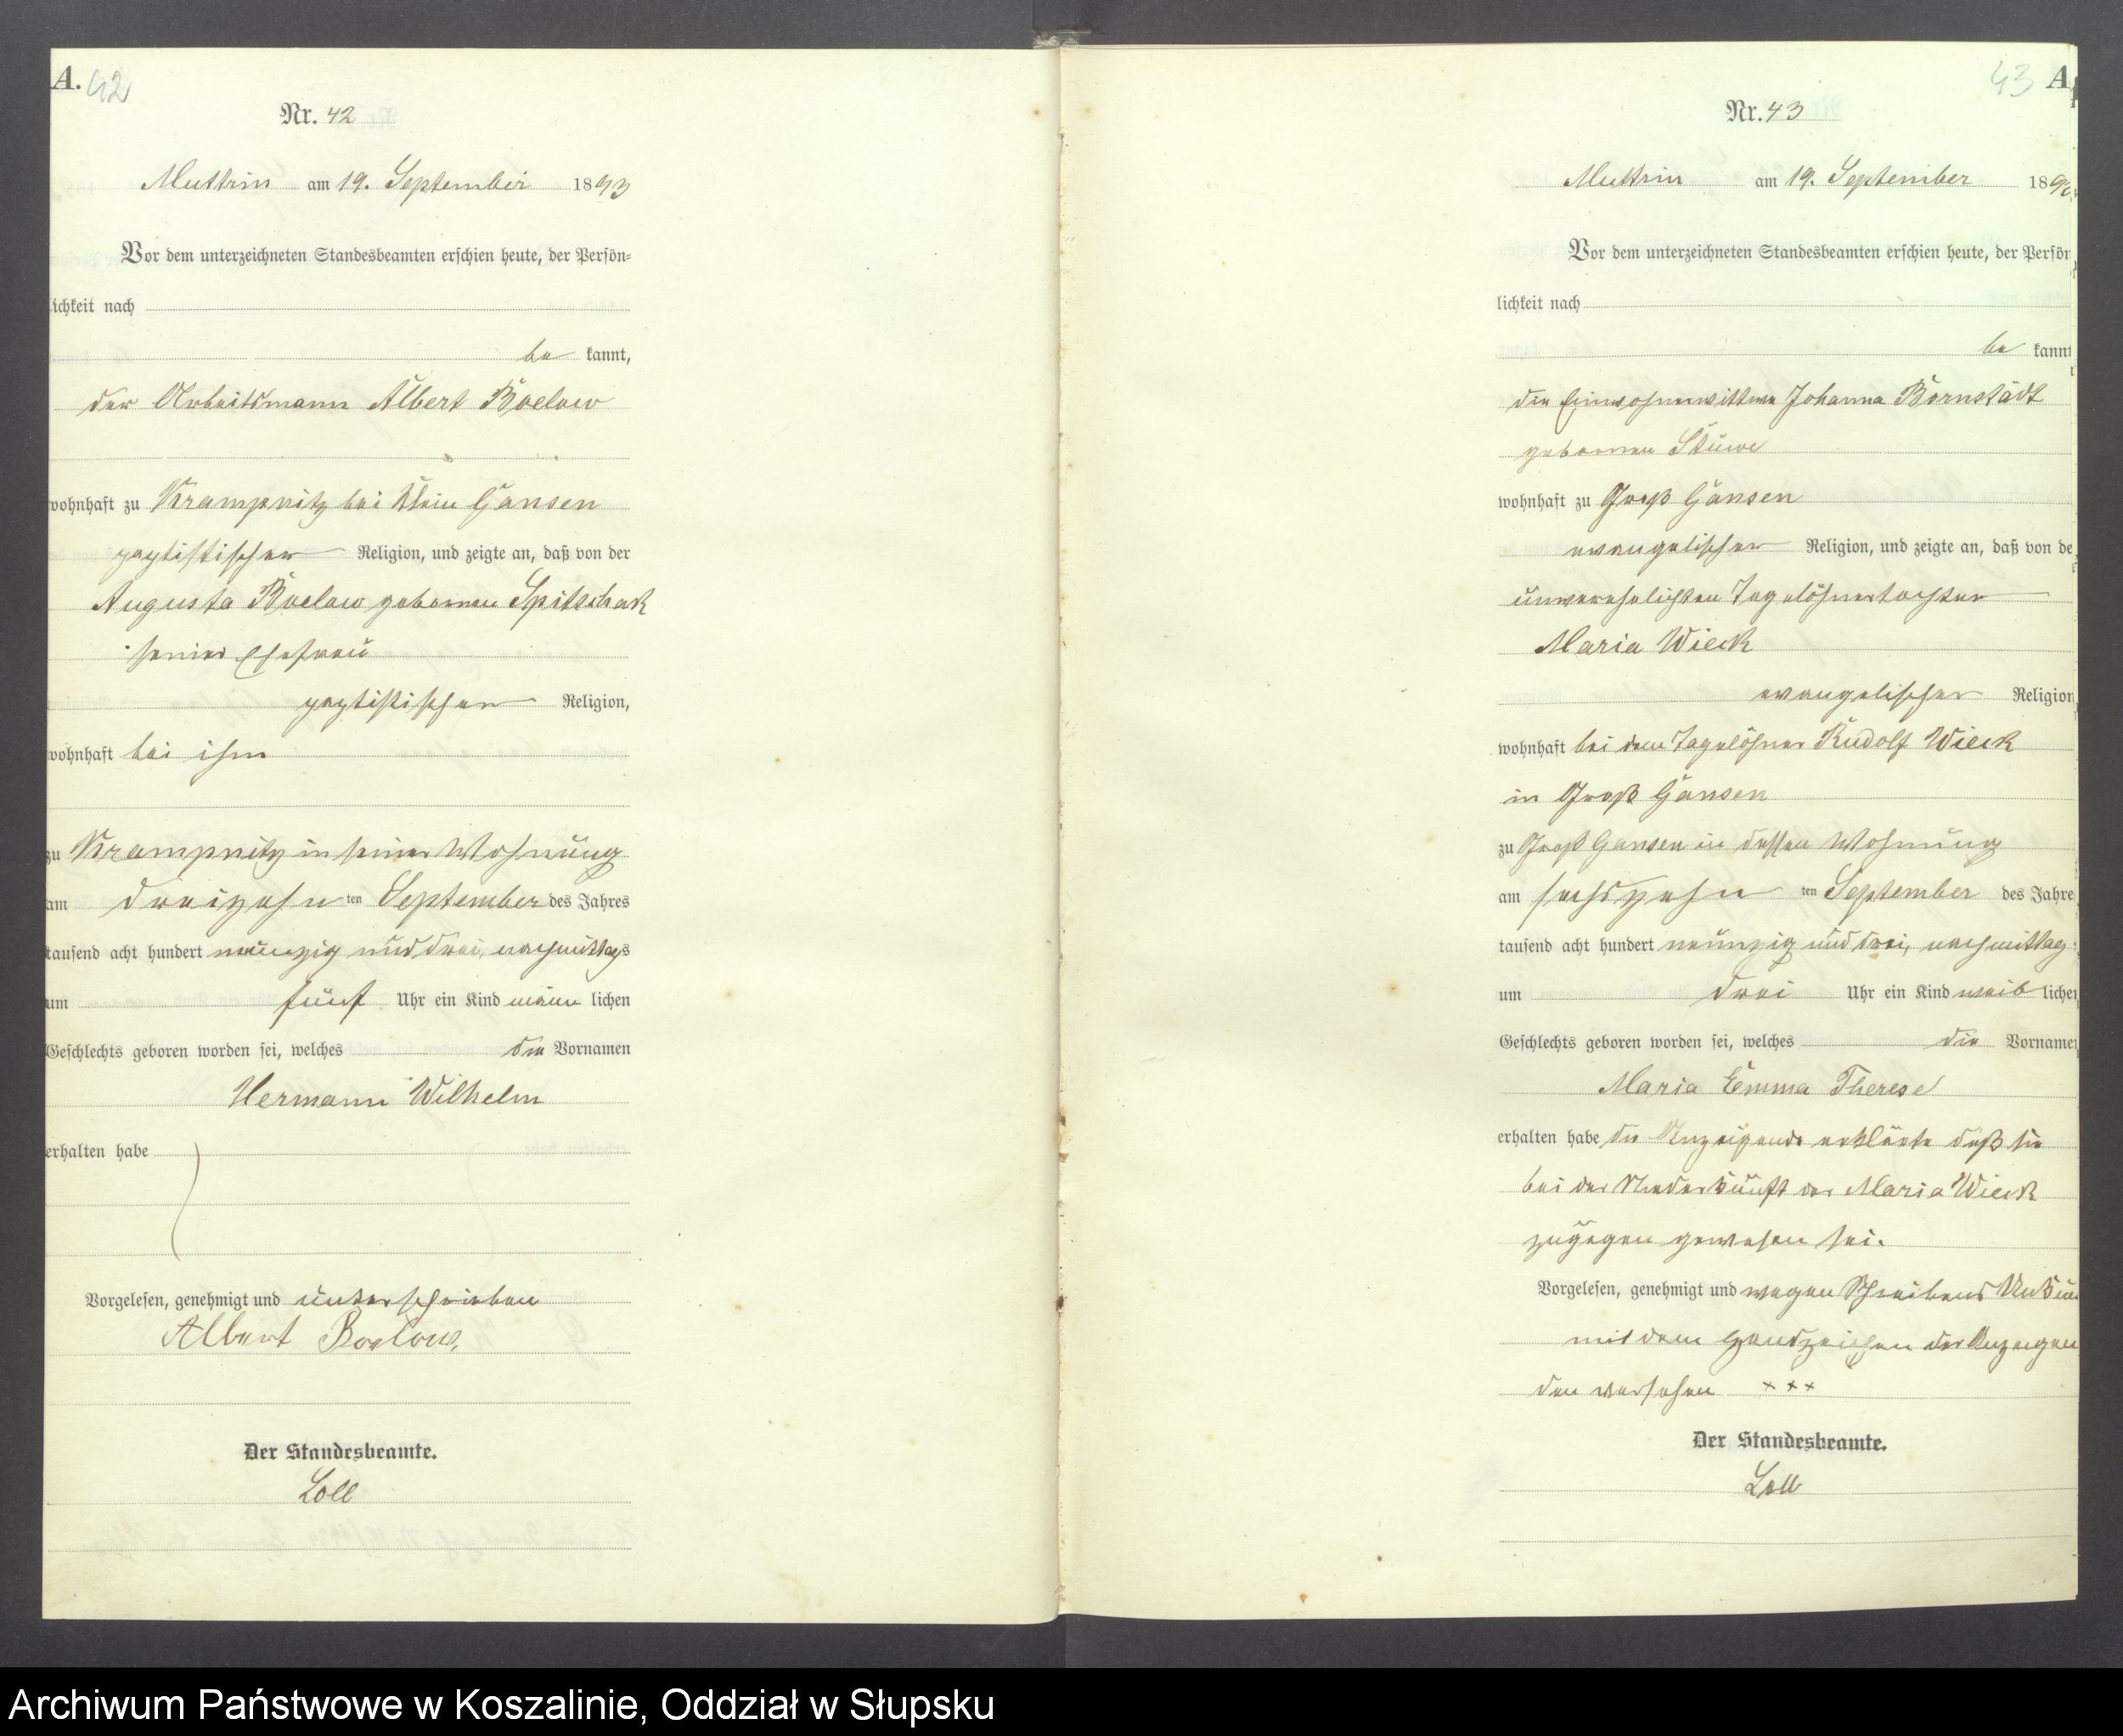 A. 42
Nr. 42
Muttrin am 19. September 1893
Vor dem unterzeichneten Standesbeamten erschien heute, der Persön=
lichkeit nach
be kannt,
der Arbeitsmann Albert Boelow
wohnhaft zu Krampnitz bei Klein Gansen
paptistischer Religion, und zeigte an, daß von der
Augusta Boelow geborenen Spitschak
seiner Ehefrau
paptistischer Religion,
wohnhaft bei ihm
zu Krampnitz in seiner Wohnung
am dreizehn ten September des Jahres
tausend acht hundert neunzig und drei, nachmittags
um fünf Uhr ein Kind männ lichen
Geschlechts geboren worden sei, welches die Vornamen
Hermann Wilhelm
erhalten habe
Vorgelesen, genehmigt und unterschrieben
Albert Boelow
Der Standesbeamte.
Loll
43 A
Nr. 43
Muttrin am 19. September 189
Vor dem unterzeichneten Standesbeamten erschien heute, der Persön
lichkeit nach
be kannt
die Einwohnerwittwe Johanna Bornstädt
geborenen Stüwe
wohnhaft zu Groß Gansen
evangelischer Religion, und zeigte an, daß von de
unverehelichten Tagelöhnertochter
Maria Wieck
evangelischer Religion
wohnhaft bei dem Tagelöhner Rudolf Wieck
in Groß Gansen
zu Groß Gansen in dessen Wohnung
am sechszehn ten September des Jahre
tausend acht hundert neunzig und drei, nachmittag
um drei Uhr ein Kind weib liche
Geschlechts geboren worden sei, welches die Vorname
Maria Emma Therese
erhalten habe die Anzeigende erklärte daß sie
bei der Niederkunft der Maria Wieck
zugegen gewesen sei.
Vorgelesen, genehmigt und wegen Schreibens Unkun
mit dem Handzeichen der Anzeigen
den versehen +++
Der Standesbeamte.
Loll
Archiwum Państwowe w Koszalinie, Oddział w Słupsku